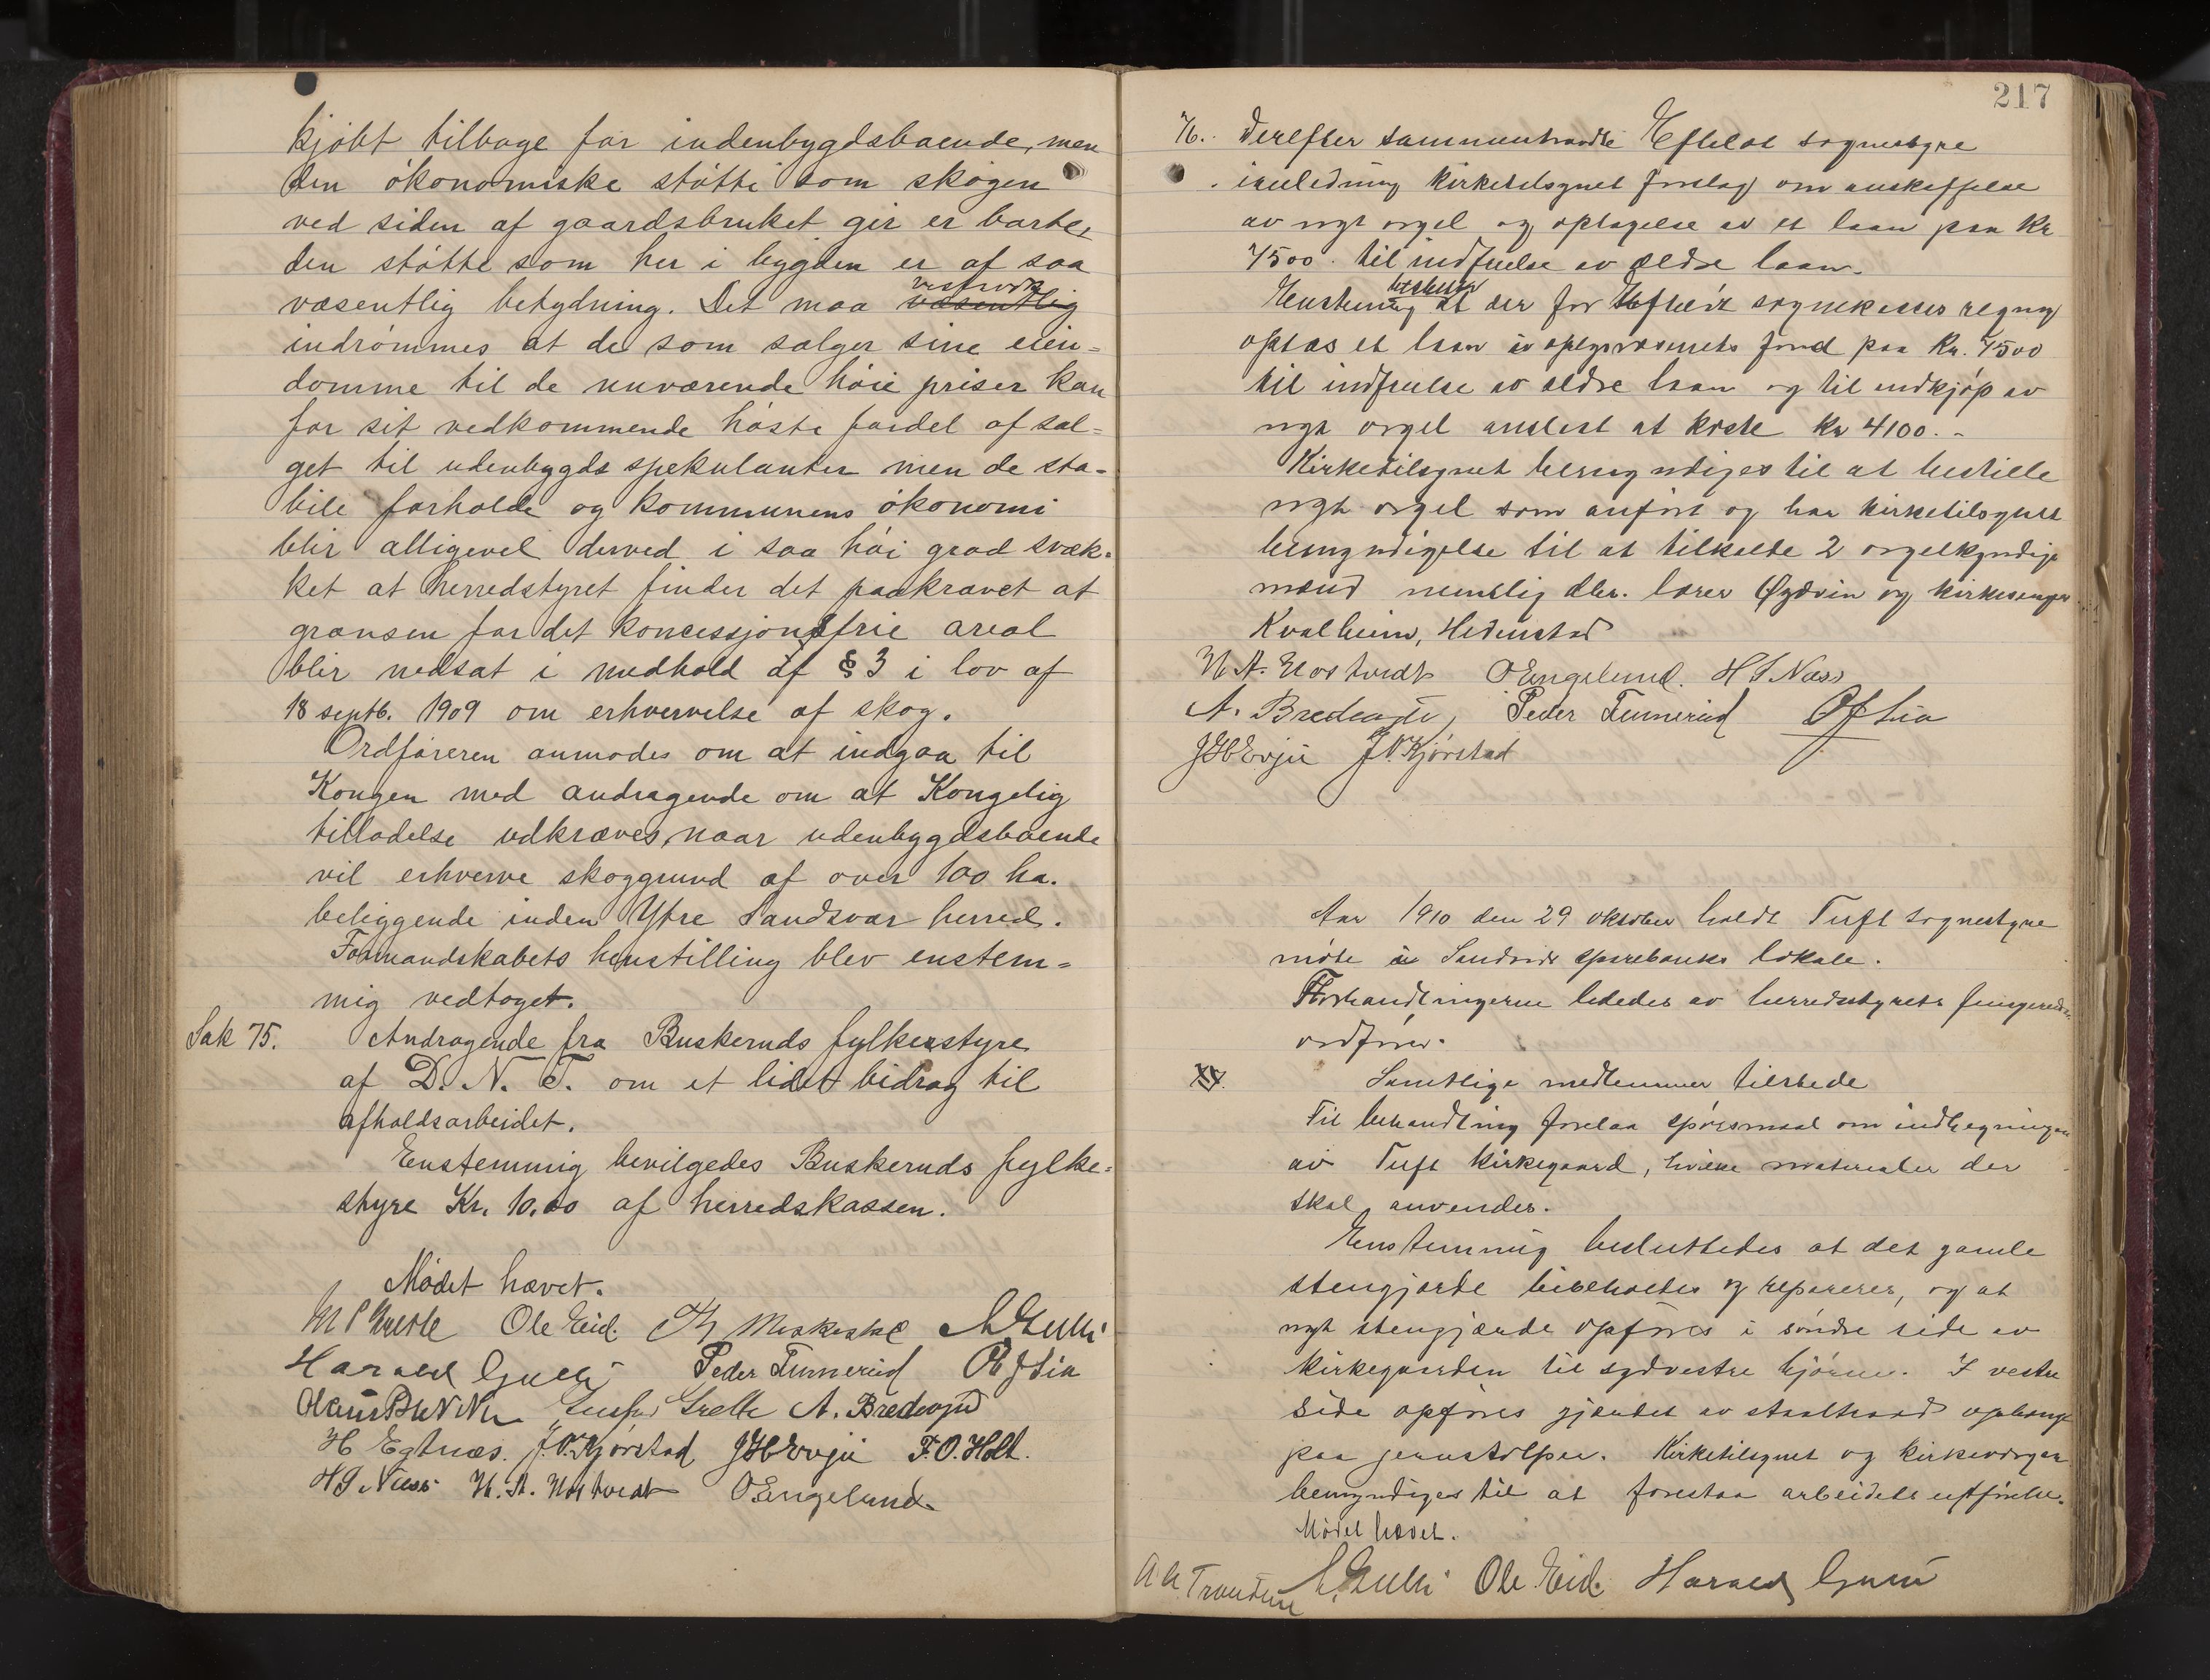 kjøbt tilbage for indenbygdsboende, men
den økonomiske støtte som skogen
ved siden af gaardsbruket gir er borte,
den støtte som her i bygden er af saa
væsentlig betydning. Det maa vistnok væsentlig
indrømmes at de som sælger sine eien=
domme til de nuværende høie priser kan
for sit vedkommende høste fordel af sal=
get til udenbygds spekulanter men de sta=
bile forholde og kommunens økonomi
blir alligevel derved i saa høi grad svæk=
ket at herredstyret finder det paakrævet at
grænsen for det koncessjonsfrie areal
blir nedsat i medhold af § 3 i lov af
18 septb. 1909 om erhvervelse af skog.
Ordføreren anmodes om at indgaa til
Kongen med andragende om at Kongelig
tilladelse udkræves, naar udenbygdsboende
vil erhverve skoggrund af over 100 ha.
beliggende inden Ytre Sandsvær herred.
Formandskabets henstilling blev enstem=
mig vedtaget.
Sak 75. Andragende fra Buskeruds fylkesstyre
af D. N. T. om et lidet bidrag til
afholdsarbeidet.
Enstemmig bevilgedes Buskeruds fylke=
styre Kr. 10.00 af herredskassen.
Mødet hævet.
Ole Eid.
Harald Peder Tumerud O J Lia
A. Bredesgt
H Egtnæs. J. N. Kjørstad J H Evju F. O. Holt.
H S Næss O Engelund
217
76. Derefter sammentraadte Efteløt sognestyre
i anledning kirketilsynet forslag om anskaffelse
av nyt orgel og optagelse av et laan paa Kr
7500. til indfrielse av ældre laan.
Enstemmig besluttes at der for Efteløt sognekasses regning
optas et laan av oplysvæsenets fond paa Kr. 7500
til indfrielse av ældre laan og til indkjøp av
nyt orgel anslaat at koste Kr 4100.-
Kirketilsynet bemyndiges til at bestille
nyt orgel som anført og har kirketilsynet
bemyndigelse til at tilkalde 2 orgelkyndige
mænd nemlig hr. lærer Øydvin og kirkesanger
Kvalheim, Hedenstad
O Engelund. H S Næss
A. Peder Tumerud O J Lia
J H Evju J N Kjørstad
Aar 1910 den 29 oktober holdt Tuft sognestyre
møte i Sandsvær sparebanks lokale.
Forhandlingerne lededes av herredstyrets fungerende
ordfører.
Samtlige medlemmer tilstede
Til behandling forelaa spørsmaal om indhegningen
av Tuft kirkegaard, hvilke materialer der
skal anvendes.
Enstemmig besluttedes at det gamle
stengjærde bibeholdes og repareres, og at
nyt stengjærde opføres i søndre side av
kirkegaarden til sydvestre hjørne. I vestre
side opføres gjærdet av staaltraad ophængt
paa jernstolper. Kirketilsynet og kirkevergen
bemyndiges til at forestaa arbeidets utførelse.
Mødet hævet.
Ole Eid. Harald